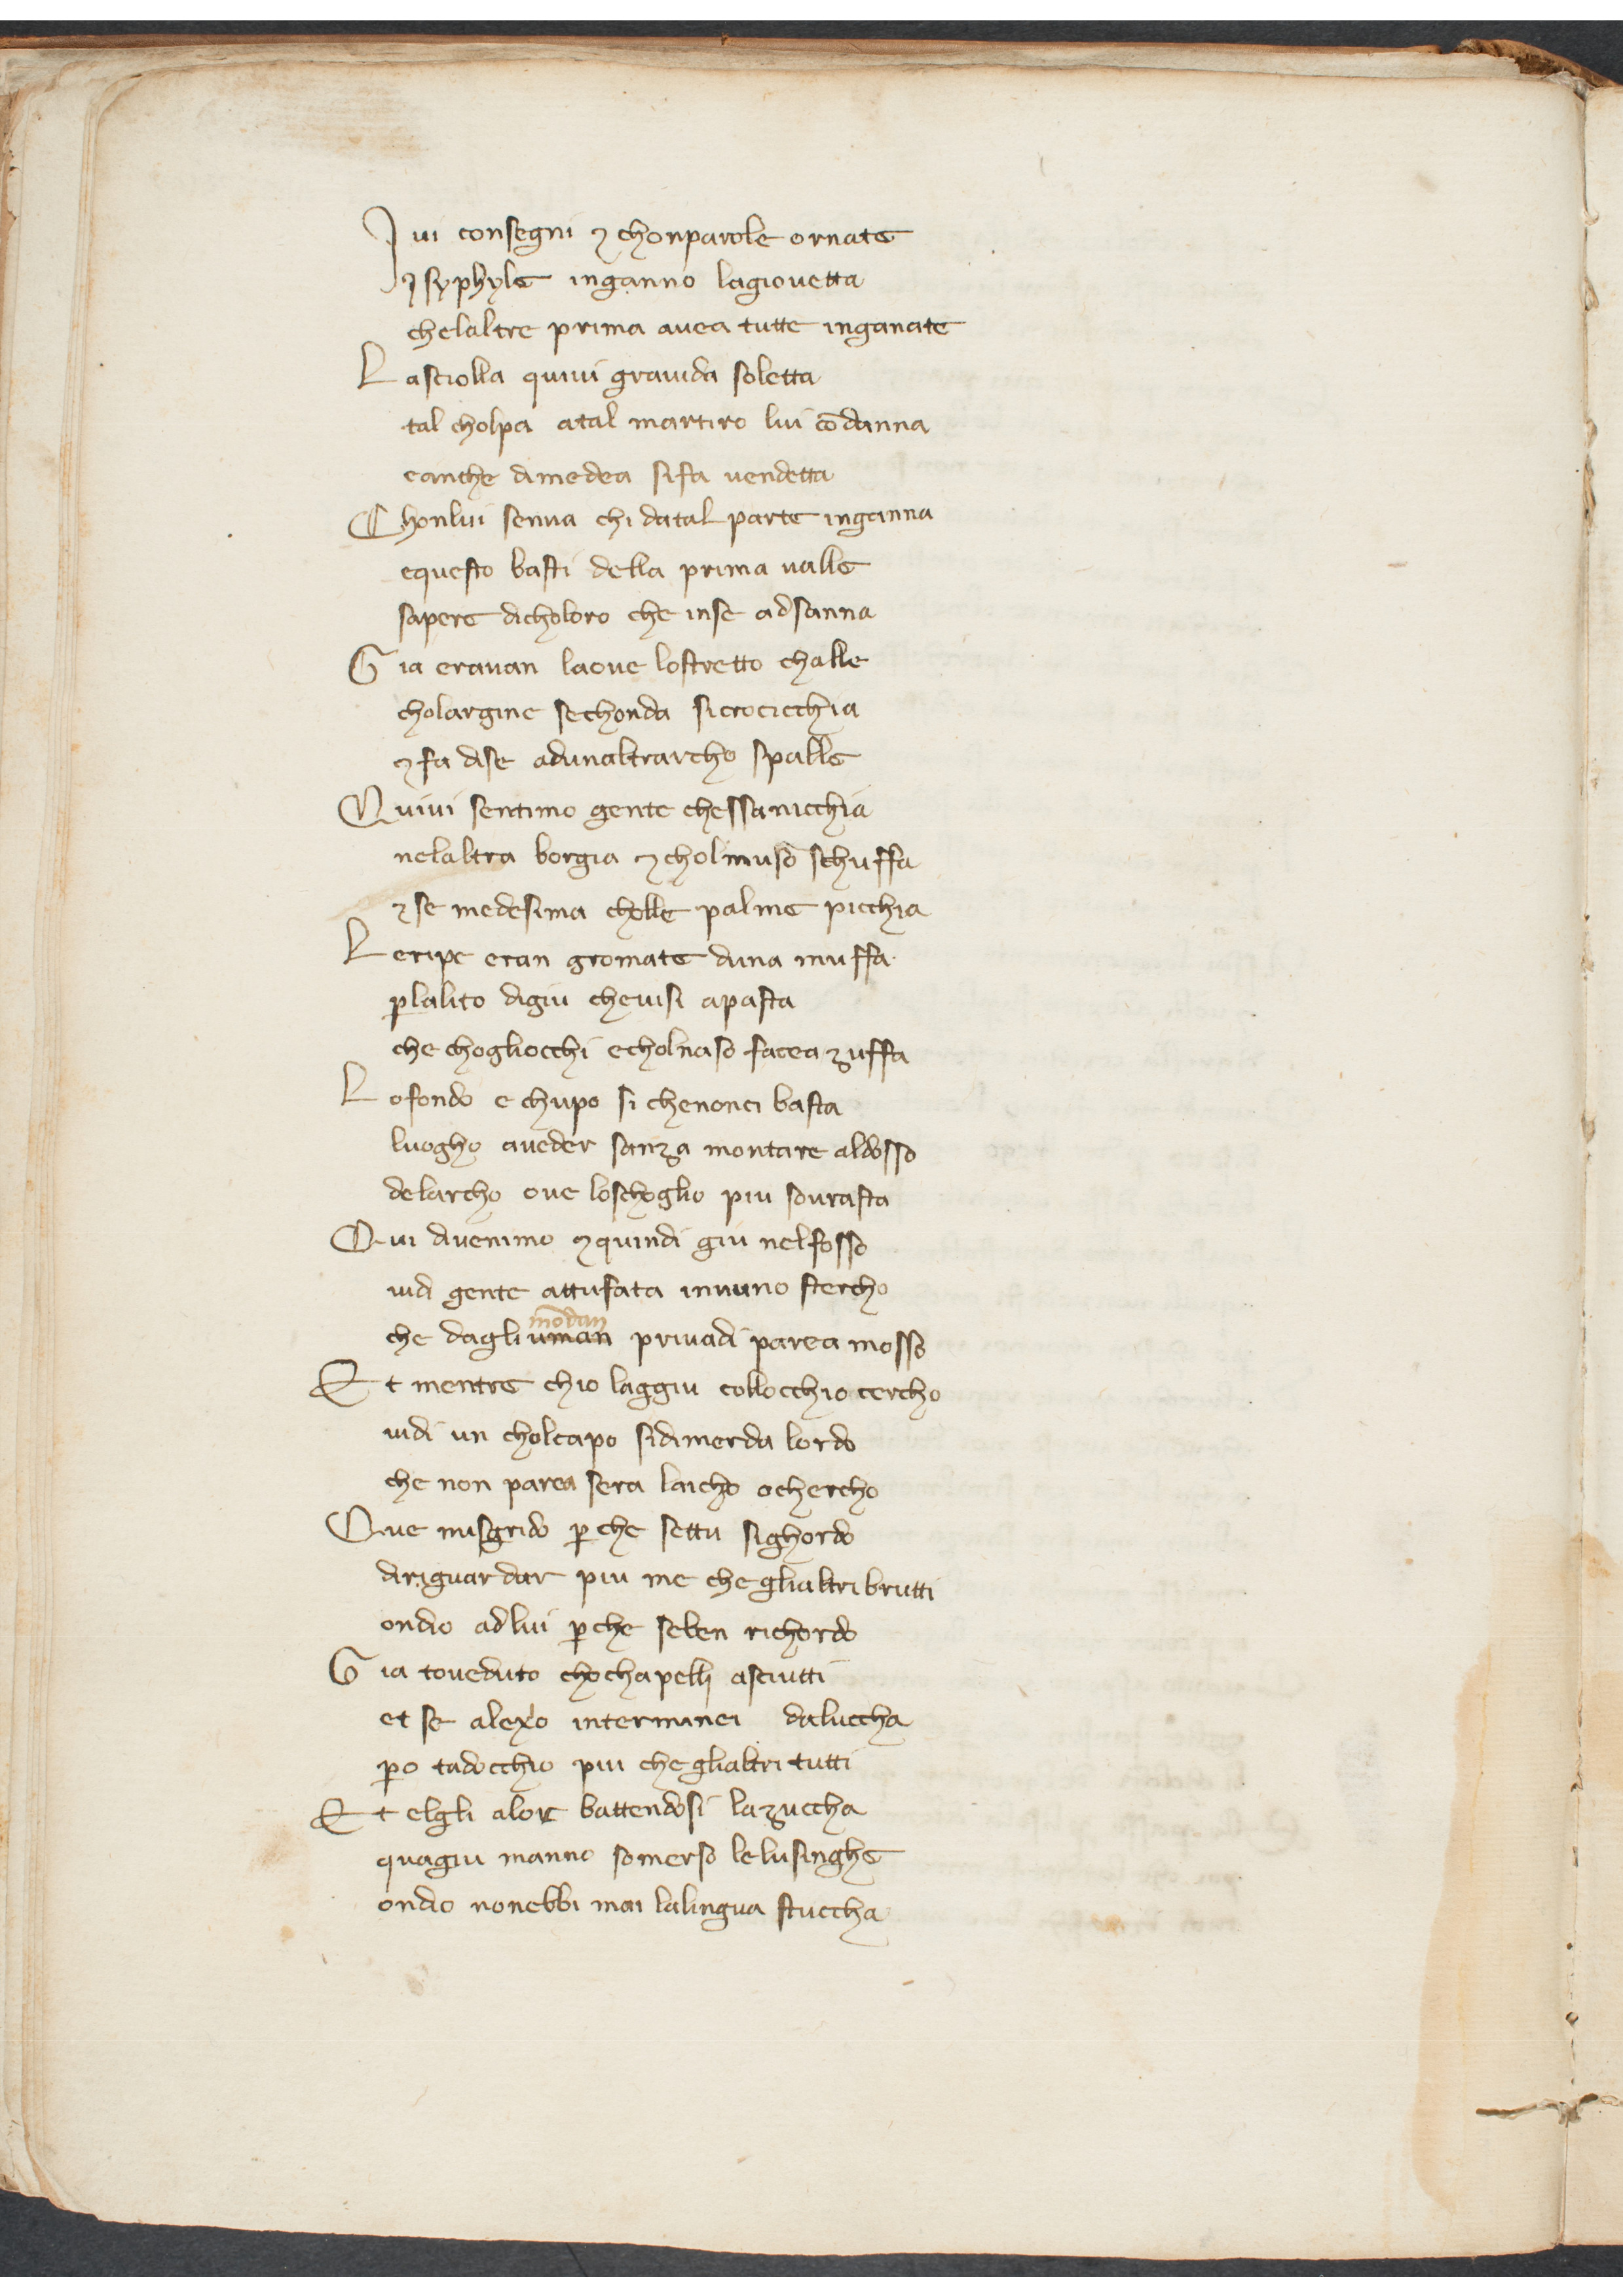 I vi consegni ⁊ chonparole ornate
ysyphyle inganno lagiovetta
chelaltre prima avea tutte inganate
L asciolla quivi gravida soletta
tal cholpa atal martiro lui cōdanna
eanche dimedea sifa vendetta
C honlui senva chi datal parte inganna
equesto basti della prima valle
sapere dicholoro che inse adsanna
G ia eravan laove lostretto challe
cholargine sechonda sicrocicchia
⁊ fa dise adunaltrarcho spalle
Q uivi sentimo gente chessanicchia
nelaltra borgia ⁊ cholmuso schuffa
⁊ se medesima cholle palme picchia
L eripe eran gromate duna muffa
ꝑlalito digiu chevisi apasta
che chogliocchi echolnaso facea zuffa
L ofondo e chupo si chenonci basta
luogho aveder sanza montare aldosso
delarcho ove loschoglio piu sovrasta
Q ui divenimo ⁊ quindi giu nelfosso
vidi gente attufata invuno stercho
modan
che dagli uman privadi parea mosso
E t mentre chio laggiu collocchio cercho
vidi un cholcapo sidimerda lordo
che non parea sera laicho ochercho
Q ue misgrido ꝑche settu sighordo
diriguardar piu me che glialtri brutti
ondio adlui ꝑche seben richordo
G ia toveduto chochapelli asciutti
et se alexo interminei daluccha
ꝑo tadocchio piu che glialtri tutti
E t elgli alor battendosi lazuccha
quagiu manno somerso lelusinghe
ondio nonebbi mai lalingua stuccha